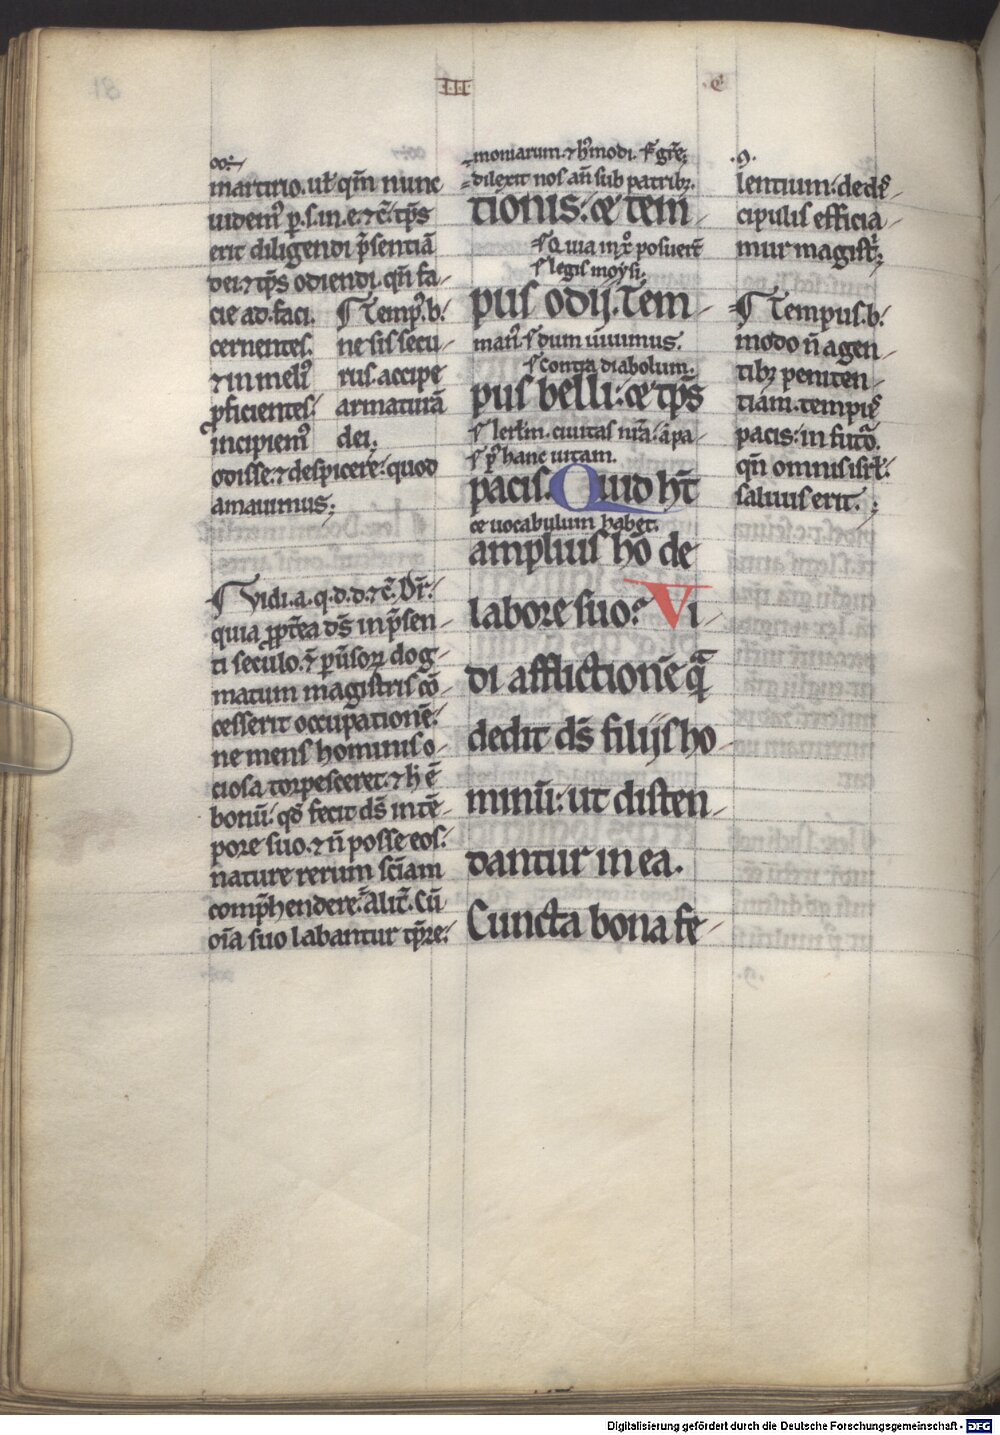 III
.e.
martirio. ul' qm̄ nunc
uidem᷒ p. s. in. e. ⁊ c̄. tp̄s
erit diligendi p̄sentiā
dei. ⁊ tp̄s odiendi. qn̄ fa-
cie ad. faci.
cernentes.
⁊ in meli᷒
ꝓficientes.
incipiem᷒
odisse. ⁊ despicere. quod
amauimus;
¶ Temp᷒. b.
ne sis secu-
rus. accipe
armaturā
dei.
¶ Vidi. a. q. d. d. ⁊ c̄. Dr̄.
quia ꝓpt̄ea ds̄ in p̄sen-
ti seculo. ē puͥsoꝝ dog-
matum magistris cō-
cesserit occupationē.
ne mens hominis o-
ciosa torpesceret. ⁊ h̄ ē
bonū. qd̄ fecit ds̄ in tē-
pore suo. ⁊ n̄ posse eos.
nature rerum sciām
comp̄hendere. Alit̄. Cū
oīa suo labantur tp̄re.
moniarum. ⁊ hͥmodi.
dilexit nos an̄ sub patribꝫ.
tionis: ⁊ tem-
Quia in xͦ posuert̄
legis moysi.
pus odij. Tem-
man᷒. dum uiuimus.
contra diabolum.
pus belli: ⁊ tp̄s
Ierl̄m. ciuitas nr̄a. a pa-
p᷒ hanc uitam.
pacis. Quid ht̄
ce uocabulum habet.
amplius hō de
labore suo? Vi-
di afflictionē q̄
dedit ds̄ filijs ho-
minū: ut disten-
dantur in ea.
Cuncta bona fe-
.9.
lentium. de de᷒-
cipulis efficia-
mur magistͥ;
¶ Tempus. b.
modo n̄ agen-
tibꝫ peniten-
tiam. temp᷒ ē
pacis: in futō.
qn̄ omnis isrl̄.
saluus erit.;
Digitalisierung gefördert durch die Deutsche Forschungsgemeinschaft - DFG